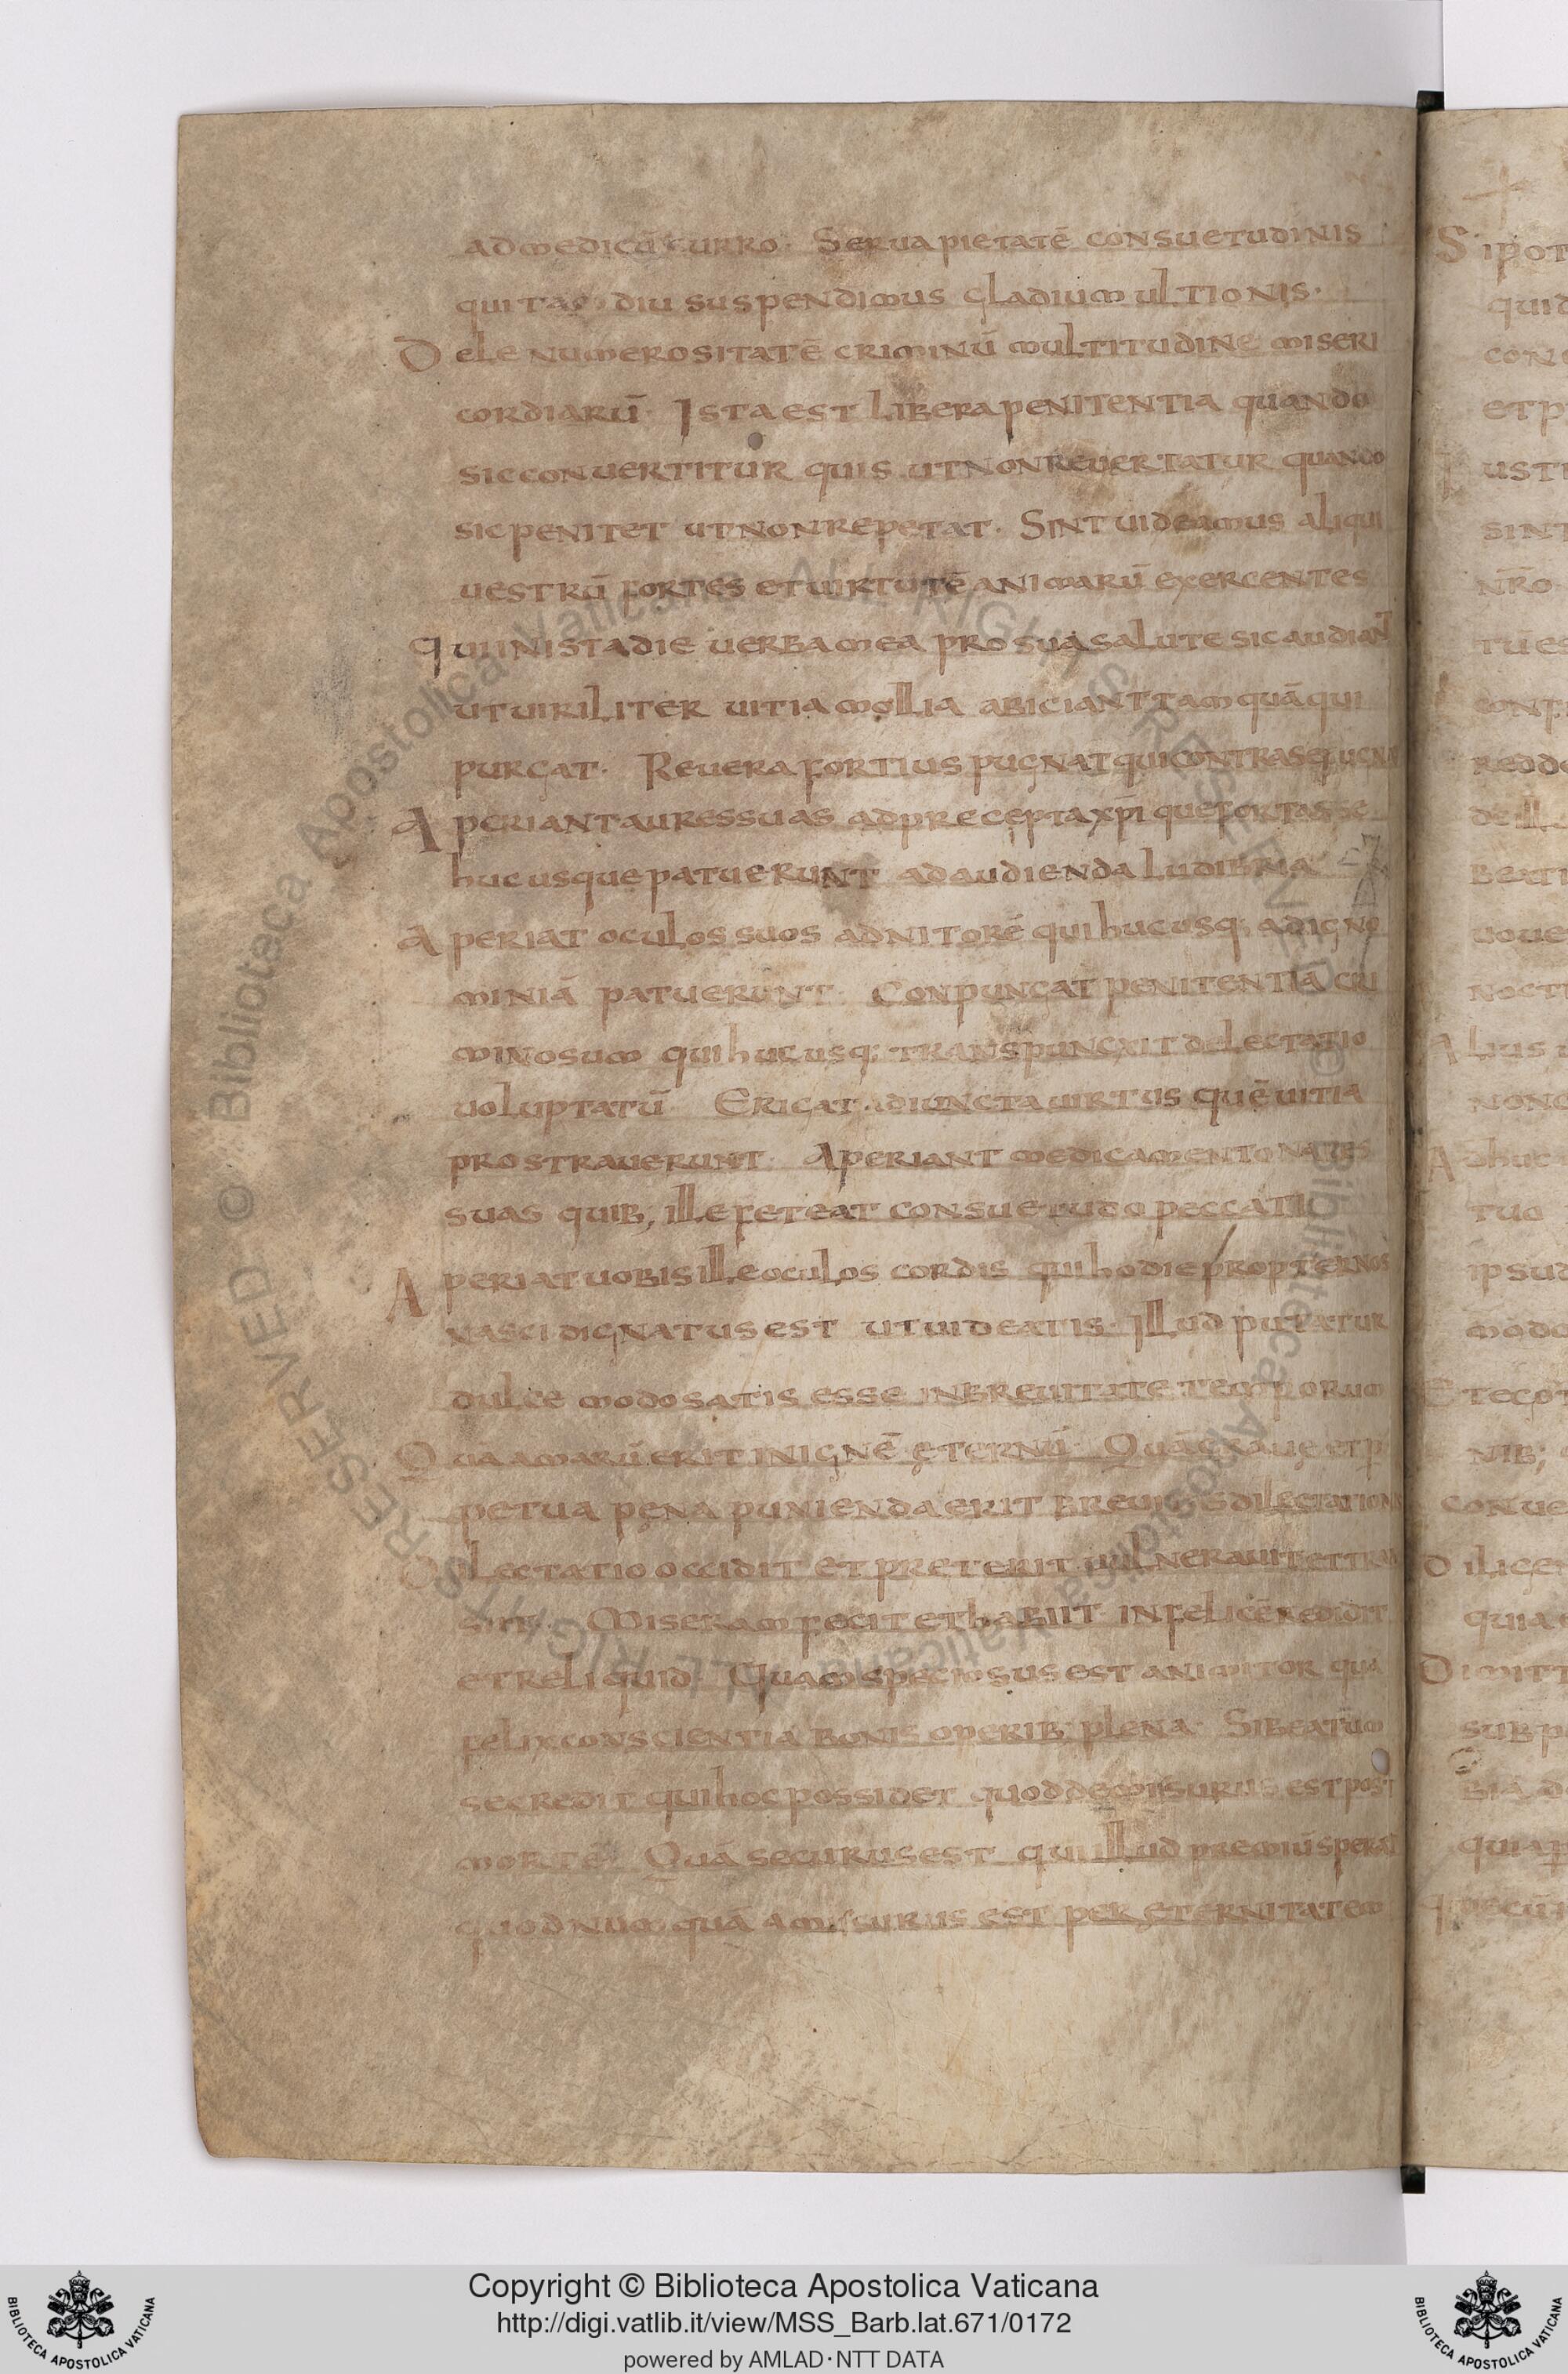 admedicū curro· Serua pietatē consuetudinis
qui tam diu suspendimus gladium ultionis·
Dele numerositatē criminū multitudine miseri
cordiarū· Ista est libera penitentia quando
sic conuertitur quis ut non reuertatur quando
sic penitet ut non repetat· Sint uideamus aliqui
uestrū fortes et uirtutē animarū exercentes
qui in ista die uerba mea pro sua salute sic audiant
ut uiriliter uitia mollia abiciant tamquā qui
purgat· Reuera fortius pugnat qui contra se pugnat
Aperiant aures suas ad precepta xp̄i que fortasse
hucusque patuerunt ad audienda ludibria
Aperiat oculos suos ad nitorē qui hucusq; ad igno
miniā patuerunt· Conpungat penitentia cri
minosum qui hucusq; transpunxit delectatio
uoluptatū· Erigat adiuncta uirtus quē uitia
prostrauerunt· Aperiant medicamento nares
suas quib; ille feteat consuetudo peccati
Aperiat uobis ille oculos cordis qui hodie propter nos
nasci dignatus est ut uideatis· Illud putatur
dulce modo satis esse in breuitate temporum
Qua amarū erit in ignē ęternū· Quā graue et p
petua pęna punienda erit breuis dilectationis
Delectatio occidit et preterit uulnerauit et tran
siit· Miseram fecit et habiit infelicē redidit
et reliquid· Quam speciosus est animi tor quā
felix conscientia bonis operib; plena· Si beatum
se credit qui hoc possidet quod demisurus est post
mortē· Quā securus est qui illud premiū sperat
quod numquā amissurus est per ęternitatem
Copyright © Biblioteca Apostolica Vaticana
http://digi.vatlib.it/view/MSS_Barb.lat.671/0172
powered by AMLAD·NTT DATA